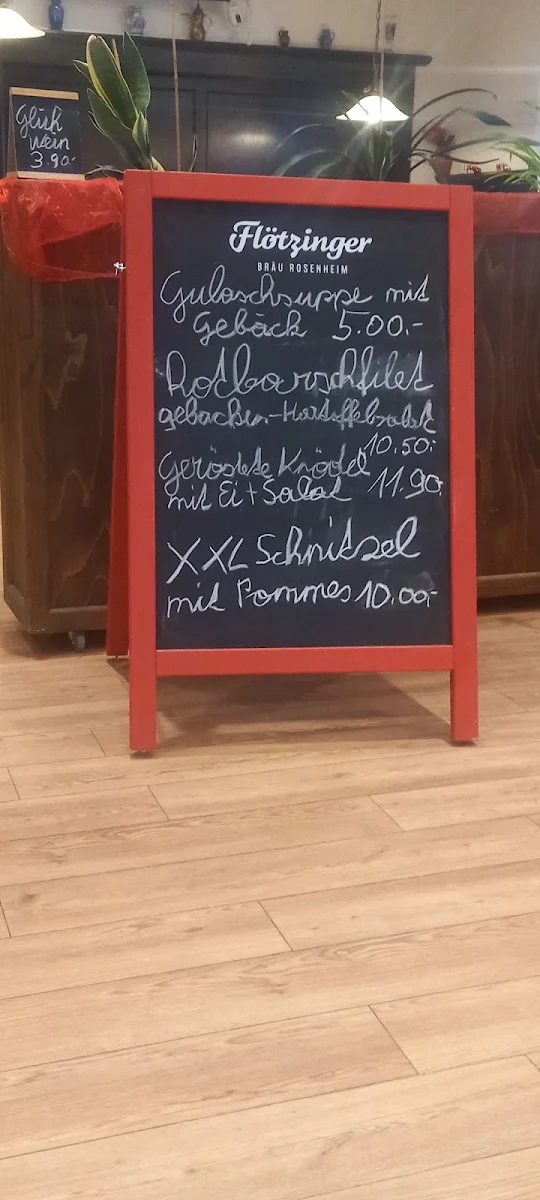 Glüh
wein
3.90.-
Flötzinger
BRÄU ROSENHEIM
Gulaschsuppe mit
Gebäck 5.00.-
Rotbarschfilet
gebacken-Kartoffelsalat
10.50.-
Geröstete Knödel
mit Ei + Salat 11.90.
XXL Schnitzel
mit Pommes 10.00.-